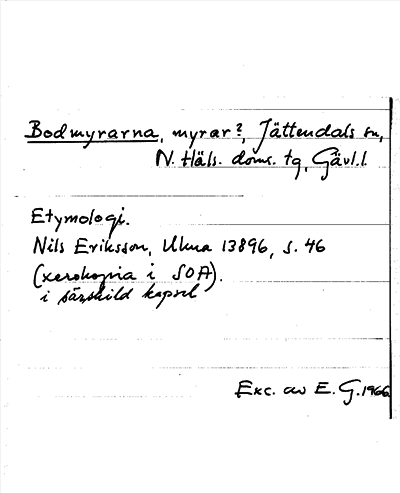 Bodmyrarna, myrar?, Jättendals sn,
N. Häls. doms. tg, Gävl.l.
Etymologi.
Nils Eriksson, Ulma 13896, s. 46
(xerokopia i SOA).
i särskild kapsel
Exc. av E. G. 1966